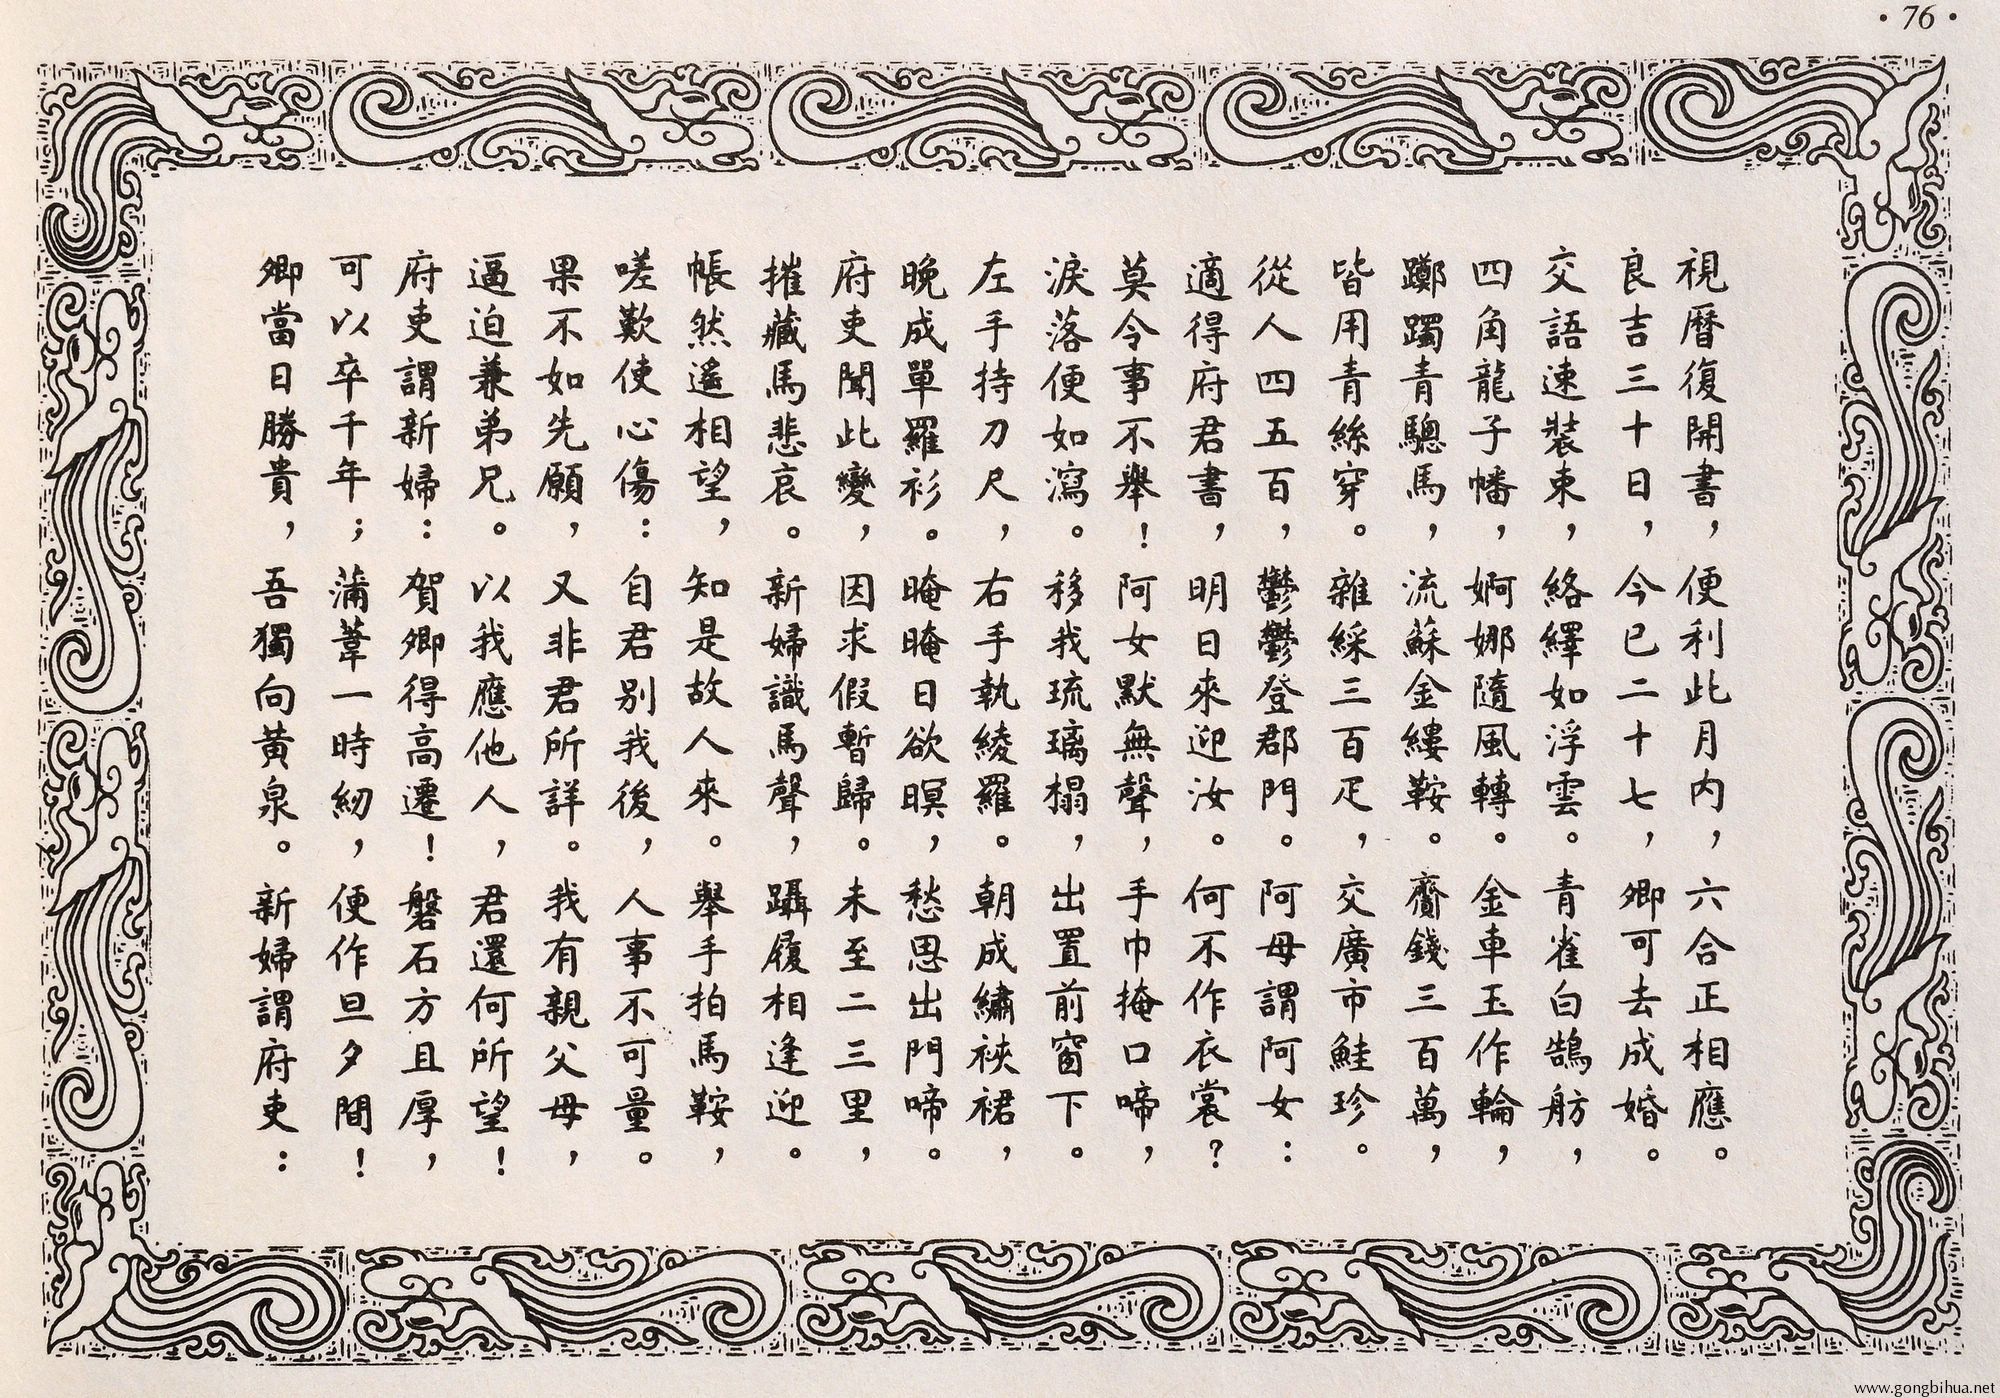 ·76·
視曆復開書，便利此月內，六合正相應。
良吉三十日，今已二十七，卿可去成婚。
交語速裝束，絡繹如浮雲。青雀白鵠舫，
四角龍子幡，婀娜隨風轉。金車玉作輪，
躑躅青驄馬，流蘇金縷鞍。齎錢三百萬，
皆用青絲穿。雜綵三百疋，交廣市鮭珍。
從人四五百，鬱鬱登郡門。阿母謂阿女：
適得府君書，明日來迎汝。何不作衣裳？
莫令事不舉！阿女默無聲，手巾掩口啼，
淚落便如瀉。移我琉璃榻，出置前窗下。
左手持刀尺，右手執綾羅。朝成繡裌裙，
晚成單羅衫。晻晻日欲暝，愁思出門啼。
府吏聞此變，因求假暫歸。未至二三里，
摧藏馬悲哀。新婦識馬聲，躡履相逢迎。
帳然遙相望，知是故人來。舉手拍馬鞍，
嗟歎使心傷：自君別我後，人事不可量。
果不如先願，又非君所詳。我有親父母，
逼迫兼弟兄。以我應他人，君還何所望！
府吏謂新婦：賀卿得高遷！磐石方且厚，
可以卒千年；蒲葦一時紉，便作旦夕間！
卿當日勝貴，吾獨向黃泉。新婦謂府吏：
www.gongbihua.net